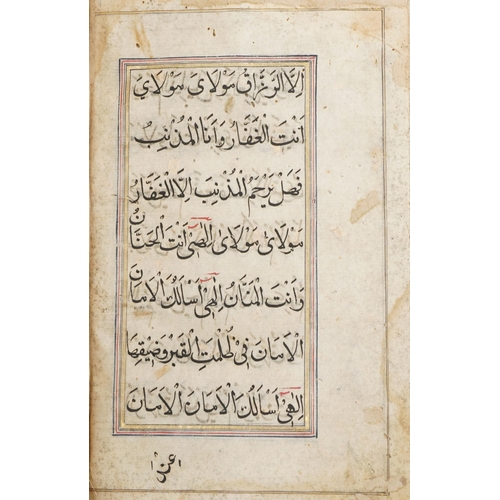 اِلَّا الرَزَّاقُ مَوْلَايَ مَوْلَايَ
اَنْتَ الْغَفَّارُ وَاَنَا الْمُذْنِبُ
فَهَلْ يَرْحَمُ الْمُذْنِبَ اِلَّا الْغَفَّارُ
مَوْلَايَ مَوْلَايَ اِلٰهِیْ اَنْتَ الْحَنَّانُ
وَاَنْتَ الْمَنَّانُ اِلٰهِیْ اَسْأَلُكَ الْاَمَانَ
الْاَمَانَ فِیْ ظُلُمٰتِ الْقَبْرِ وَضِیْقِهَا
اِلٰهِیْ اَسْأَلُكَ الْاَمَانَ الْاَمَانَ